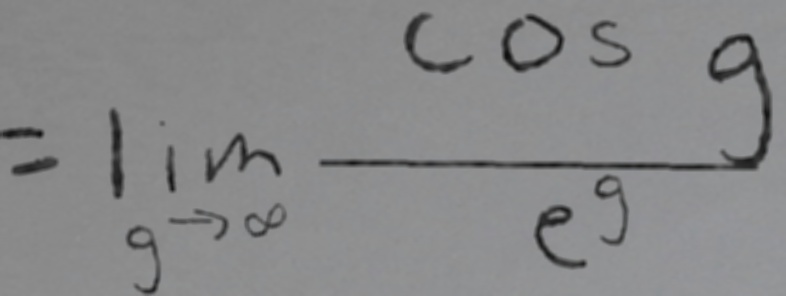 = lim_{g→∞} \frac{cos g}{e^g}